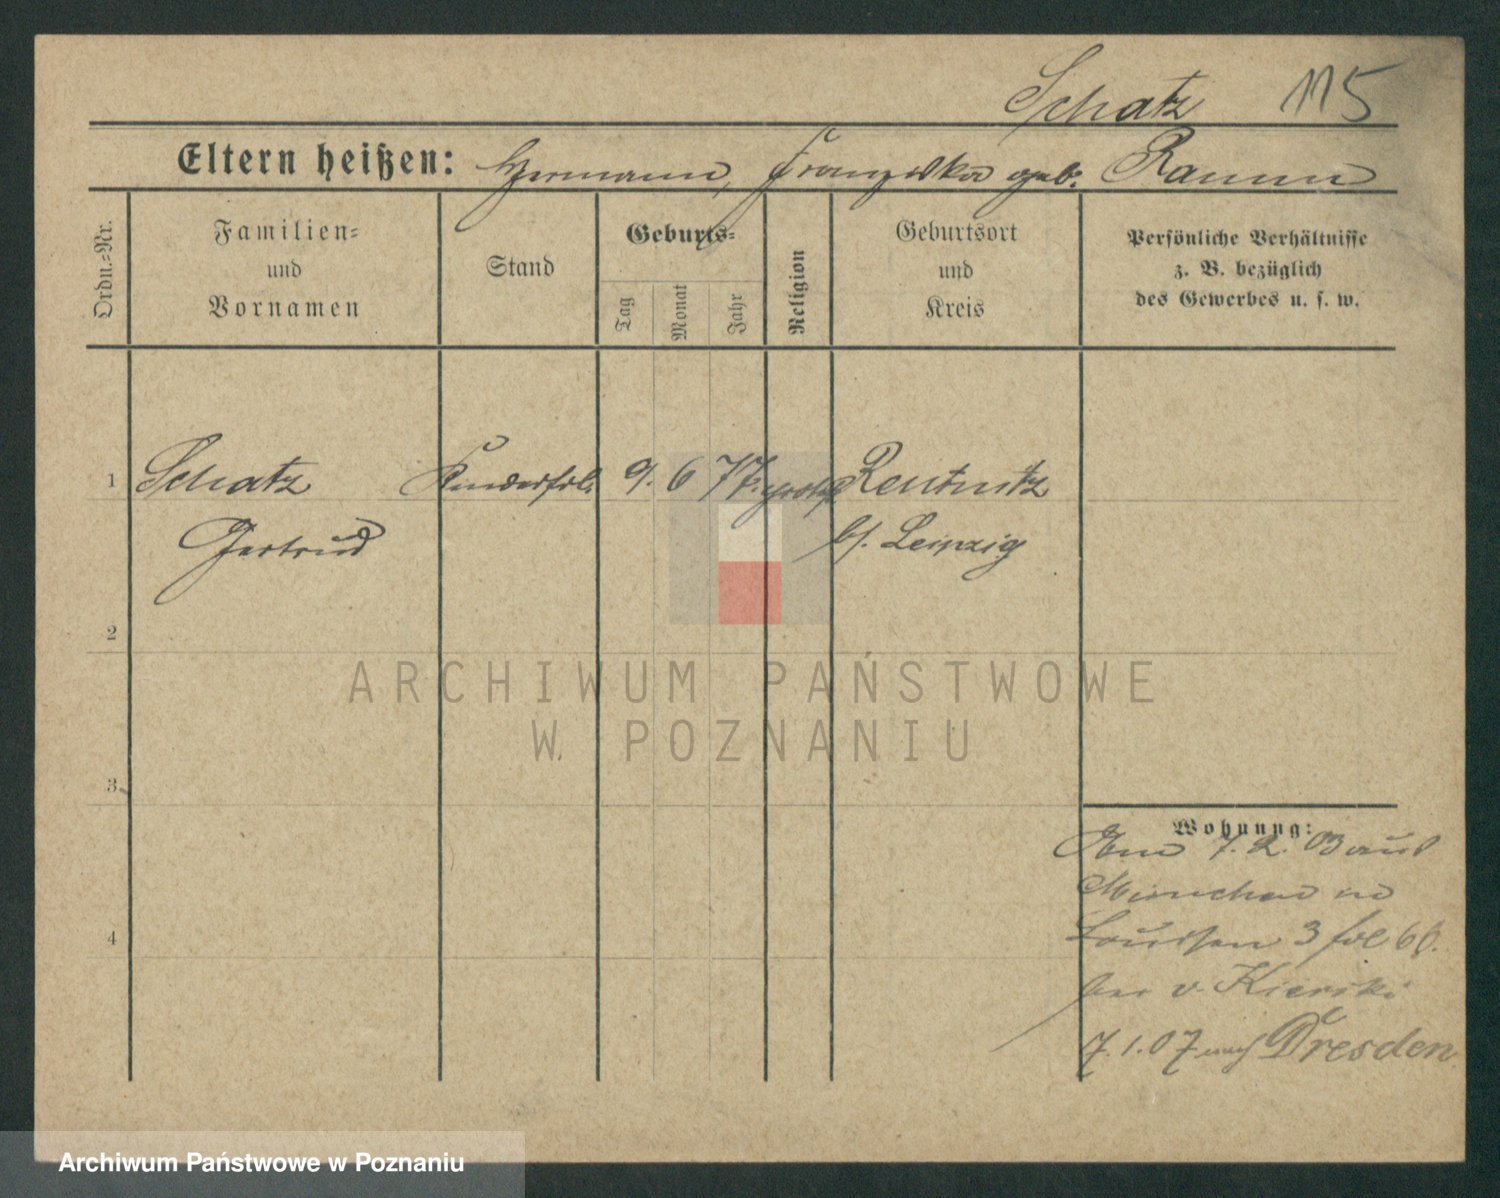 Schatz 115
Eltern heißen: Hermann, Franziska geb. Ramm
Ordn.-Nr.
Familien-
und
Vornamen
Stand
Geburts-
Tag
Monat
Jahr
Religion
Geburtsort
und
Kreis
Persönliche Verhältnisse
z. B. bezüglich
des Gewerbes u. s. w.
1 Schatz Kinderfrl. 9. 6 77. Reudnitz
Gertrud b/. Leipzig
2
3
4
Wohnung:
7. 2. 03 aus
München in
Louisen 3
bei v. Kierski
7.1.07 nach Dresden
ARCHIWUM PAŃSTWOWE
W POZNANIU
Archiwum Państwowe w Poznaniu